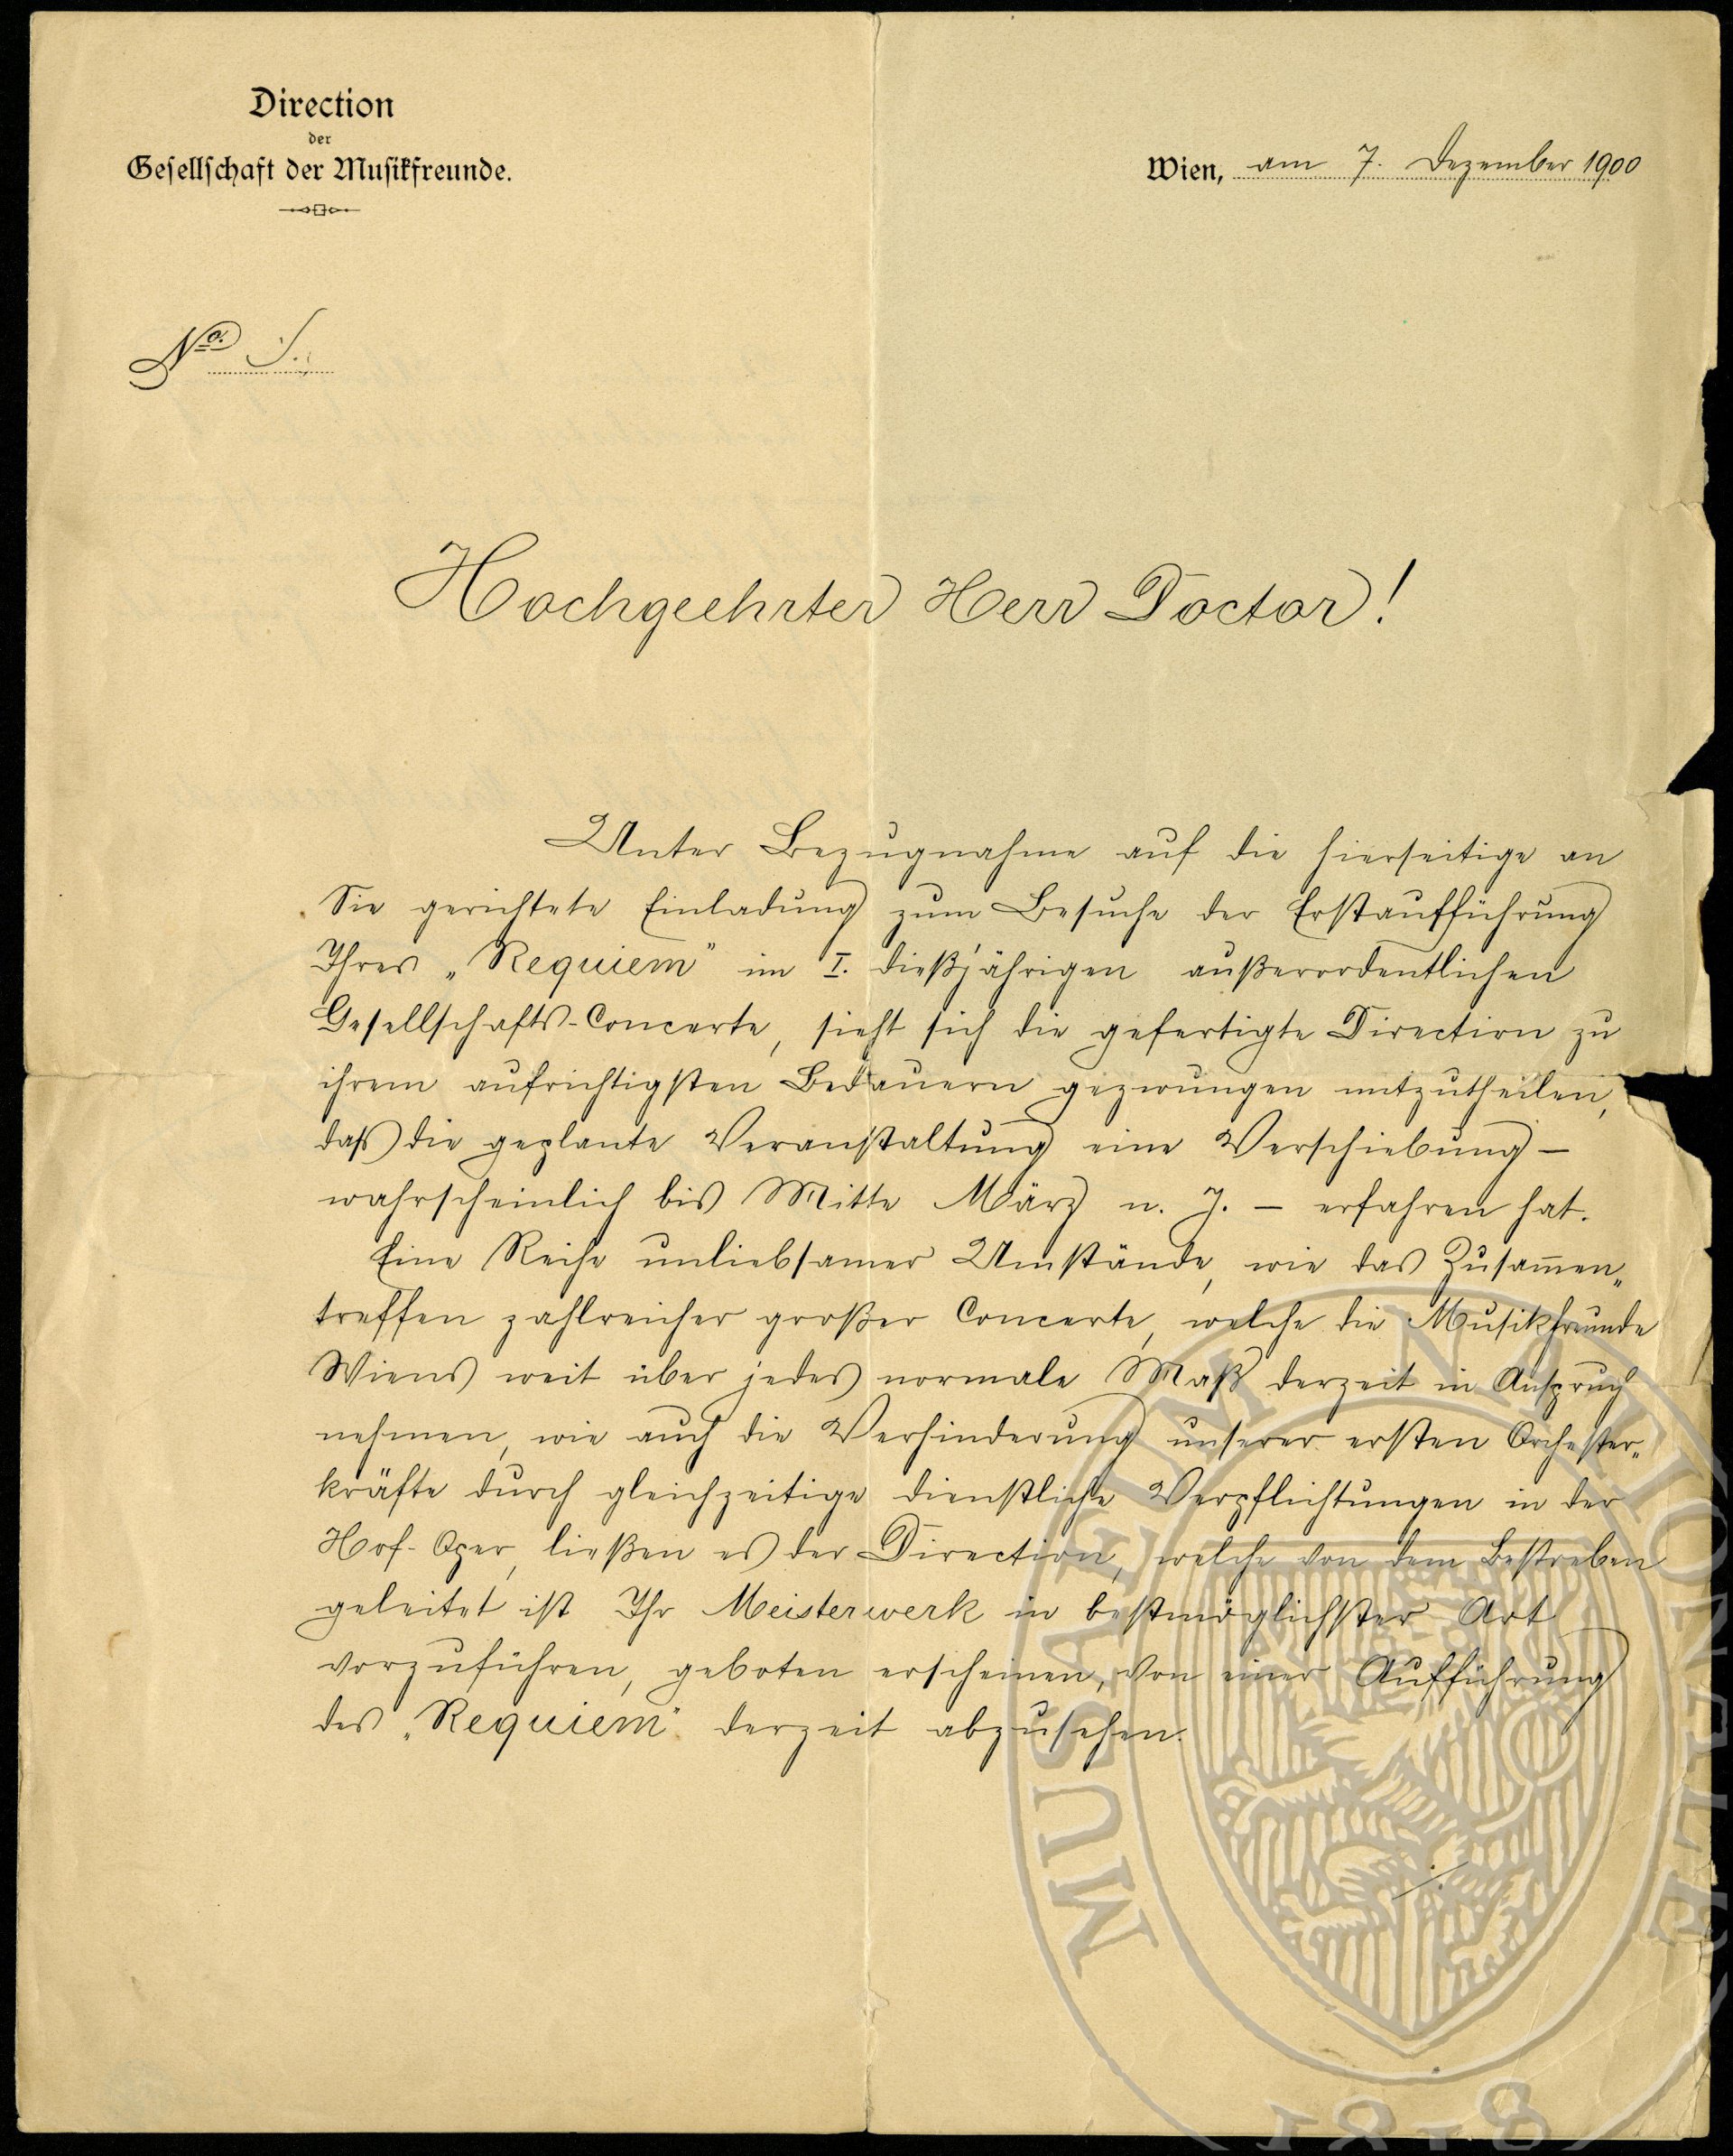 Direction
der
Gesellschaft der Musikfreunde.
Wien, am 7. Dezember 1900
No.
Hochgeehrter Herr Doctor!
Unter Bezugnahme auf die hierseitige an
Sie gerichtete Einladung zum Besuche der Erstaufführung
Ihres „Requiem" im I. dießjährigen außerordentlichen
Gesellschafts-Concerte, sieht sich die gefertigte Direction zu
ihrem aufrichtigsten Bedauern gezwungen mitzutheilen,
daß die geplante Veranstaltung eine Verschiebung –
wahrscheinlich bis Mitte März n. J. – erfahren hat.
Eine Reihe unliebsamer Umstände, wie das Zusam̅en„
treffen zahlreicher großer Concerte, welche die Musikfreunde
Wiens weit über jedes normale Maß derzeit in Anspruch
nehmen, wie auch die Verhinderung unserer ersten Orchester„
kräfte durch gleichzeitige dienstliche Verpflichtungen in der
Hof-Oper, ließen es der Direction, welche von dem Bestreben
geleitet ist Ihr Meisterwerk in bestmöglichster Art
vorzuführen, geboten erscheinen, von einer Aufführung
des „Requiem" derzeit abzusehen.
./.
MUSAEUM NATIONALE
1818